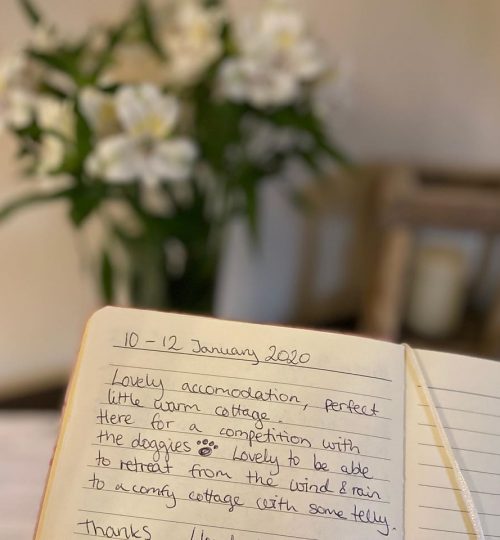 10 - 12 January 2020
Lovely accomodation, perfect
little warm cottage.
Here for a competition with
the doggies Lovely to be able
to retreat from the wind & rain
to a comfy cottage with some telly.
Thanks